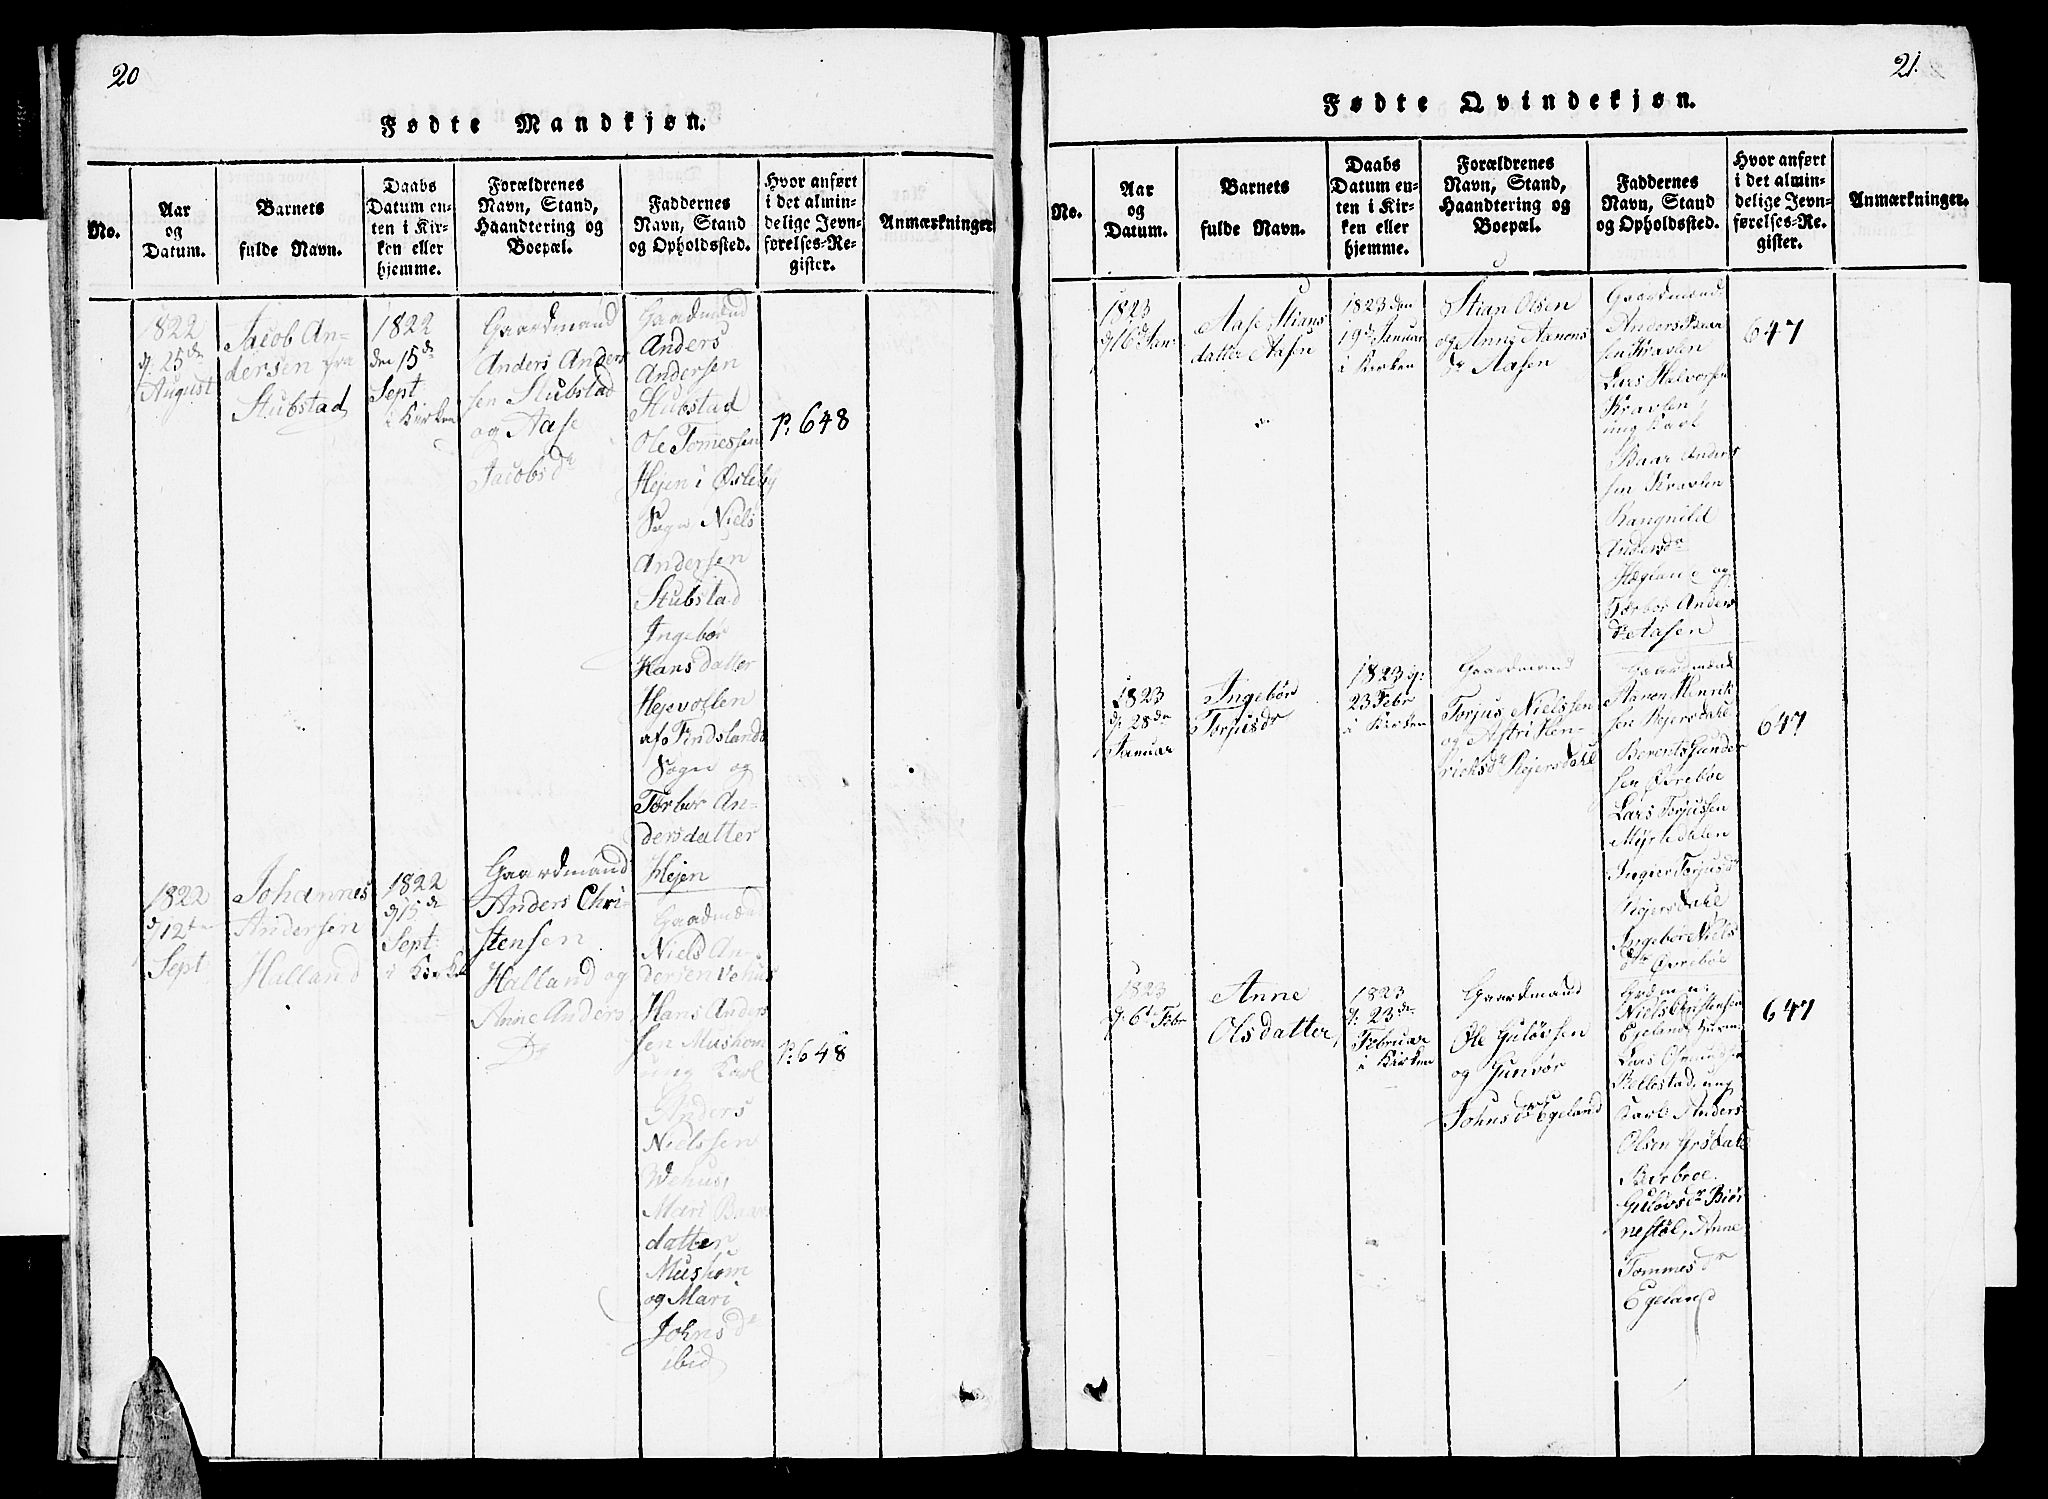 20
Fødte Mandkjøn.
No.
Aar
og
Datum.
Barnets
fulde Navn.
Daabs
Datum en-
ten i Kir-
ken eller
hjemme.
Forældrenes
Navn, Stand,
Haandtering og
Boepæl.
Faddernes
Navn, Stand
og Opholdssted.
Hvor anført
i det almin-
delige Jevn-
førelses-Re-
gister.
Anmærkninger
1822
d. 25de
August
Jacob An-
dersen fra
Stubstad
1822
den 15de
Sept
i Kirken
Gaardmand
Anders Anders
sen Stubstad
og Aase
Jacobsdr
Gaardmænd
Anders
Andersen
Stubstad
Ole Tomessen
Hejen i Øsleby
Sogn Niels
Andersen
Stubstad
Ingebør
Hansdatter
Hejvollen
af Findslands
Sogn og
Torbør An-
dersdatter
Hejen
P. 648
1822
d 12te
Sept
Johannes
Andersen
Halland
1822
d 15de
Sept:
i Kirken
Gaardmand
Anders Chri-
stensen
Halland og
Anne Anders
Dr
Gaardmænd
Niels An-
dersen Vehus
Hans Anders
sen Mushom
ung Karl
Anders
Nielssen
Wehus,
Mari Baars
datter
Mushom
og Mari
Johnsdr
ibid
P. 648
21.
Fødte Qvindekjøn.
No.
Aar
og
Datum.
Barnets
fulde Navn.
Daabs
Datum en-
ten i Kir-
ken eller
hjemme.
Forældrenes
Navn, Stand,
Haandtering og
Boepæl.
Faddernes
Navn, Stand
og Opholdssted.
Hvor anført
i det almin-
delige Jevn-
førelses-Re-
gister.
Anmærkninger.
1823
d 16de Jan:
Aase Stians
datter Aasen
1823 den
19de Januar
i Kirken
Stian Olsen
og Anne Aanons
dr Aasen
Gaardmænd
Anders Baar
sen Kravlen
Lars Halvorsen
Kravlen
ung Karl
Baar Anders
sen Kravlen
Rangnild
Andersdr
og
Torbør Anders
dr Aasen
647
1823
d. 28de
Januar
Ingebør
Torjusdr
1823 d:
23 Febr
i Kirken
Gaardmand
Torjus Nielssen
og Astri Hen-
ricksdr Rejersdahl
Gaardmænd
Aanon Henrik
sen Rejersdahl
Berent Gunder
sen Øvrebøe
Lars Torjussen
Myrkedalen
Ingier Torjusdr
Rejersdahl
Ingebør Niels
dr Øvrebøe
647
1823
d. 6te Febr
Anne
Olsdatter
1823
d. 23de
Februar
i Kirken
Gaardmand
Ole Guløvsen
og Gunvør
Johnsdr Egeland
Niels Christensen
Egeland
Lars
ung
Karl Anders
Olsen
Barbroe
Guløvsdr Biør
nestøl, Anne
Tommesdr
Egeland
647